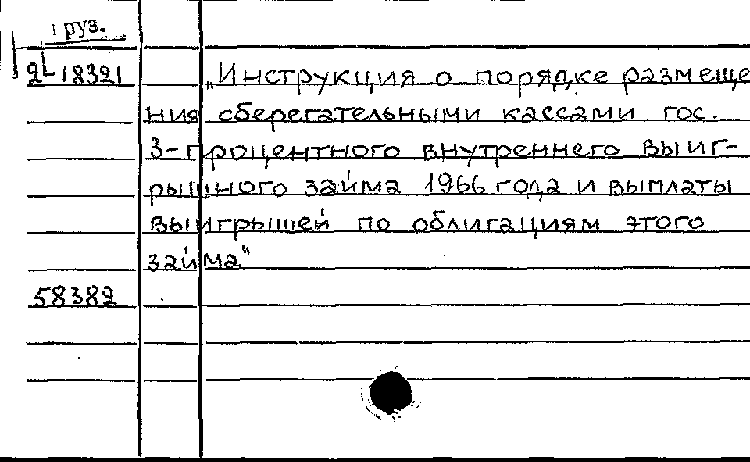 груз.
2-18321
„Инструкция о порядке размеще
ния сберегательными кассами гос.
3-процентного внутреннего выиг-
рышного займа 1966 года и выплаты
выигрышей по облигациям этого
займа"
58382